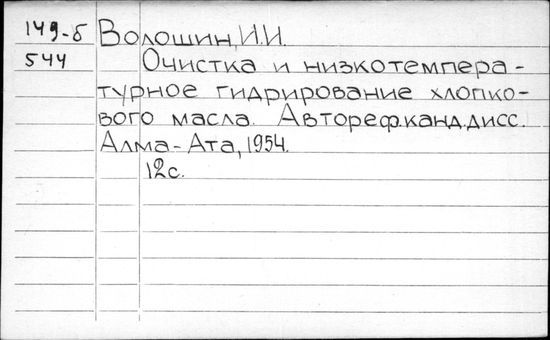 149-б Волошин, И.И.
544 Очистка и низкотемпера-
турное гидрирование хлопко-
вого масла. Автореф.канд.дисс.
Алма-Ата, 1954.
12с.